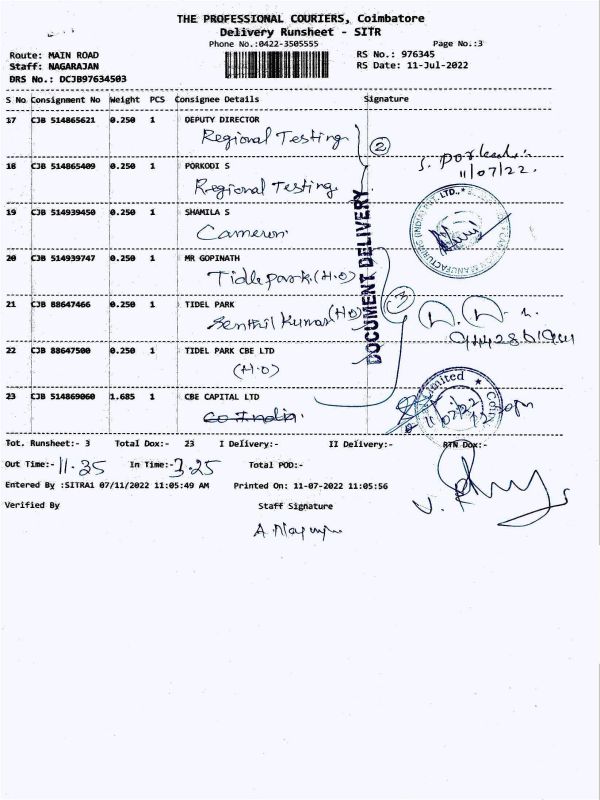 THE PROFESSIONAL COURIERS, Coimbatore
Delivery Runsheet - SITR
Phone No.:0422-3505555
Page No.:3
Route: MAIN ROAD
RS No.: 976345
Staff: NAGARAJAN
RS Date: 11-Jul-2022
DRS No.: DCJB97634503
S No Consignment No Weight PCS Consignee Details Signature
17 CJB 514865621 0.250 1 DEPUTY DIRECTOR
Regional Testing
2
18 CJB 514865409 0.250 1 PORKODI S
11/07/22.
Regional Testing
19 CJB 514939450 0.250 1 SHAMILA S
Cameron
20 CJB 514939747 0.250 1 MR GOPINATH
Tidle park (H.O)
DOCUMENT DELIVERY
3
21 CJB 88647466 0.250 1 TIDEL PARK
Senthil Kumar (H.O)
22 CJB 88647500 0.250 1 TIDEL PARK CBE LTD
(H.O)
23 CJB 514869060 1.685 1 CBE CAPITAL LTD
Co India.
Limited
Tot. Runsheet:- 3 Total Dox:- 23 I Delivery:- II Delivery:- RTN Dox:-
Out Time:- 11.35 In Time:- 3.25 Total POD:-
Entered By :SITRA1 07/11/2022 11:05:49 AM Printed On: 11-07-2022 11:05:56
Verified By Staff Signature